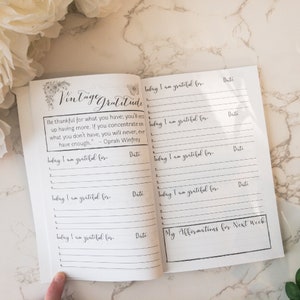 Vintage Gratitude
Be thankful for what you have; you'll end
up having more. If you concentrate on
what you don't have, you will never, ever
have enough." - Oprah Winfrey
Today I am grateful for: Date:
Today I am grateful for: Date:
Today I am grateful for: Date:
Today I am grateful for: Date:
Today I am grateful for: Date:
Today I am grateful for: Date:
Today I am grateful for: Date:
My Affirmations for Next Week